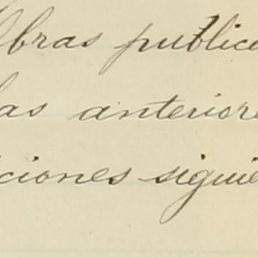 Obras public
las anterior
iciones siguie